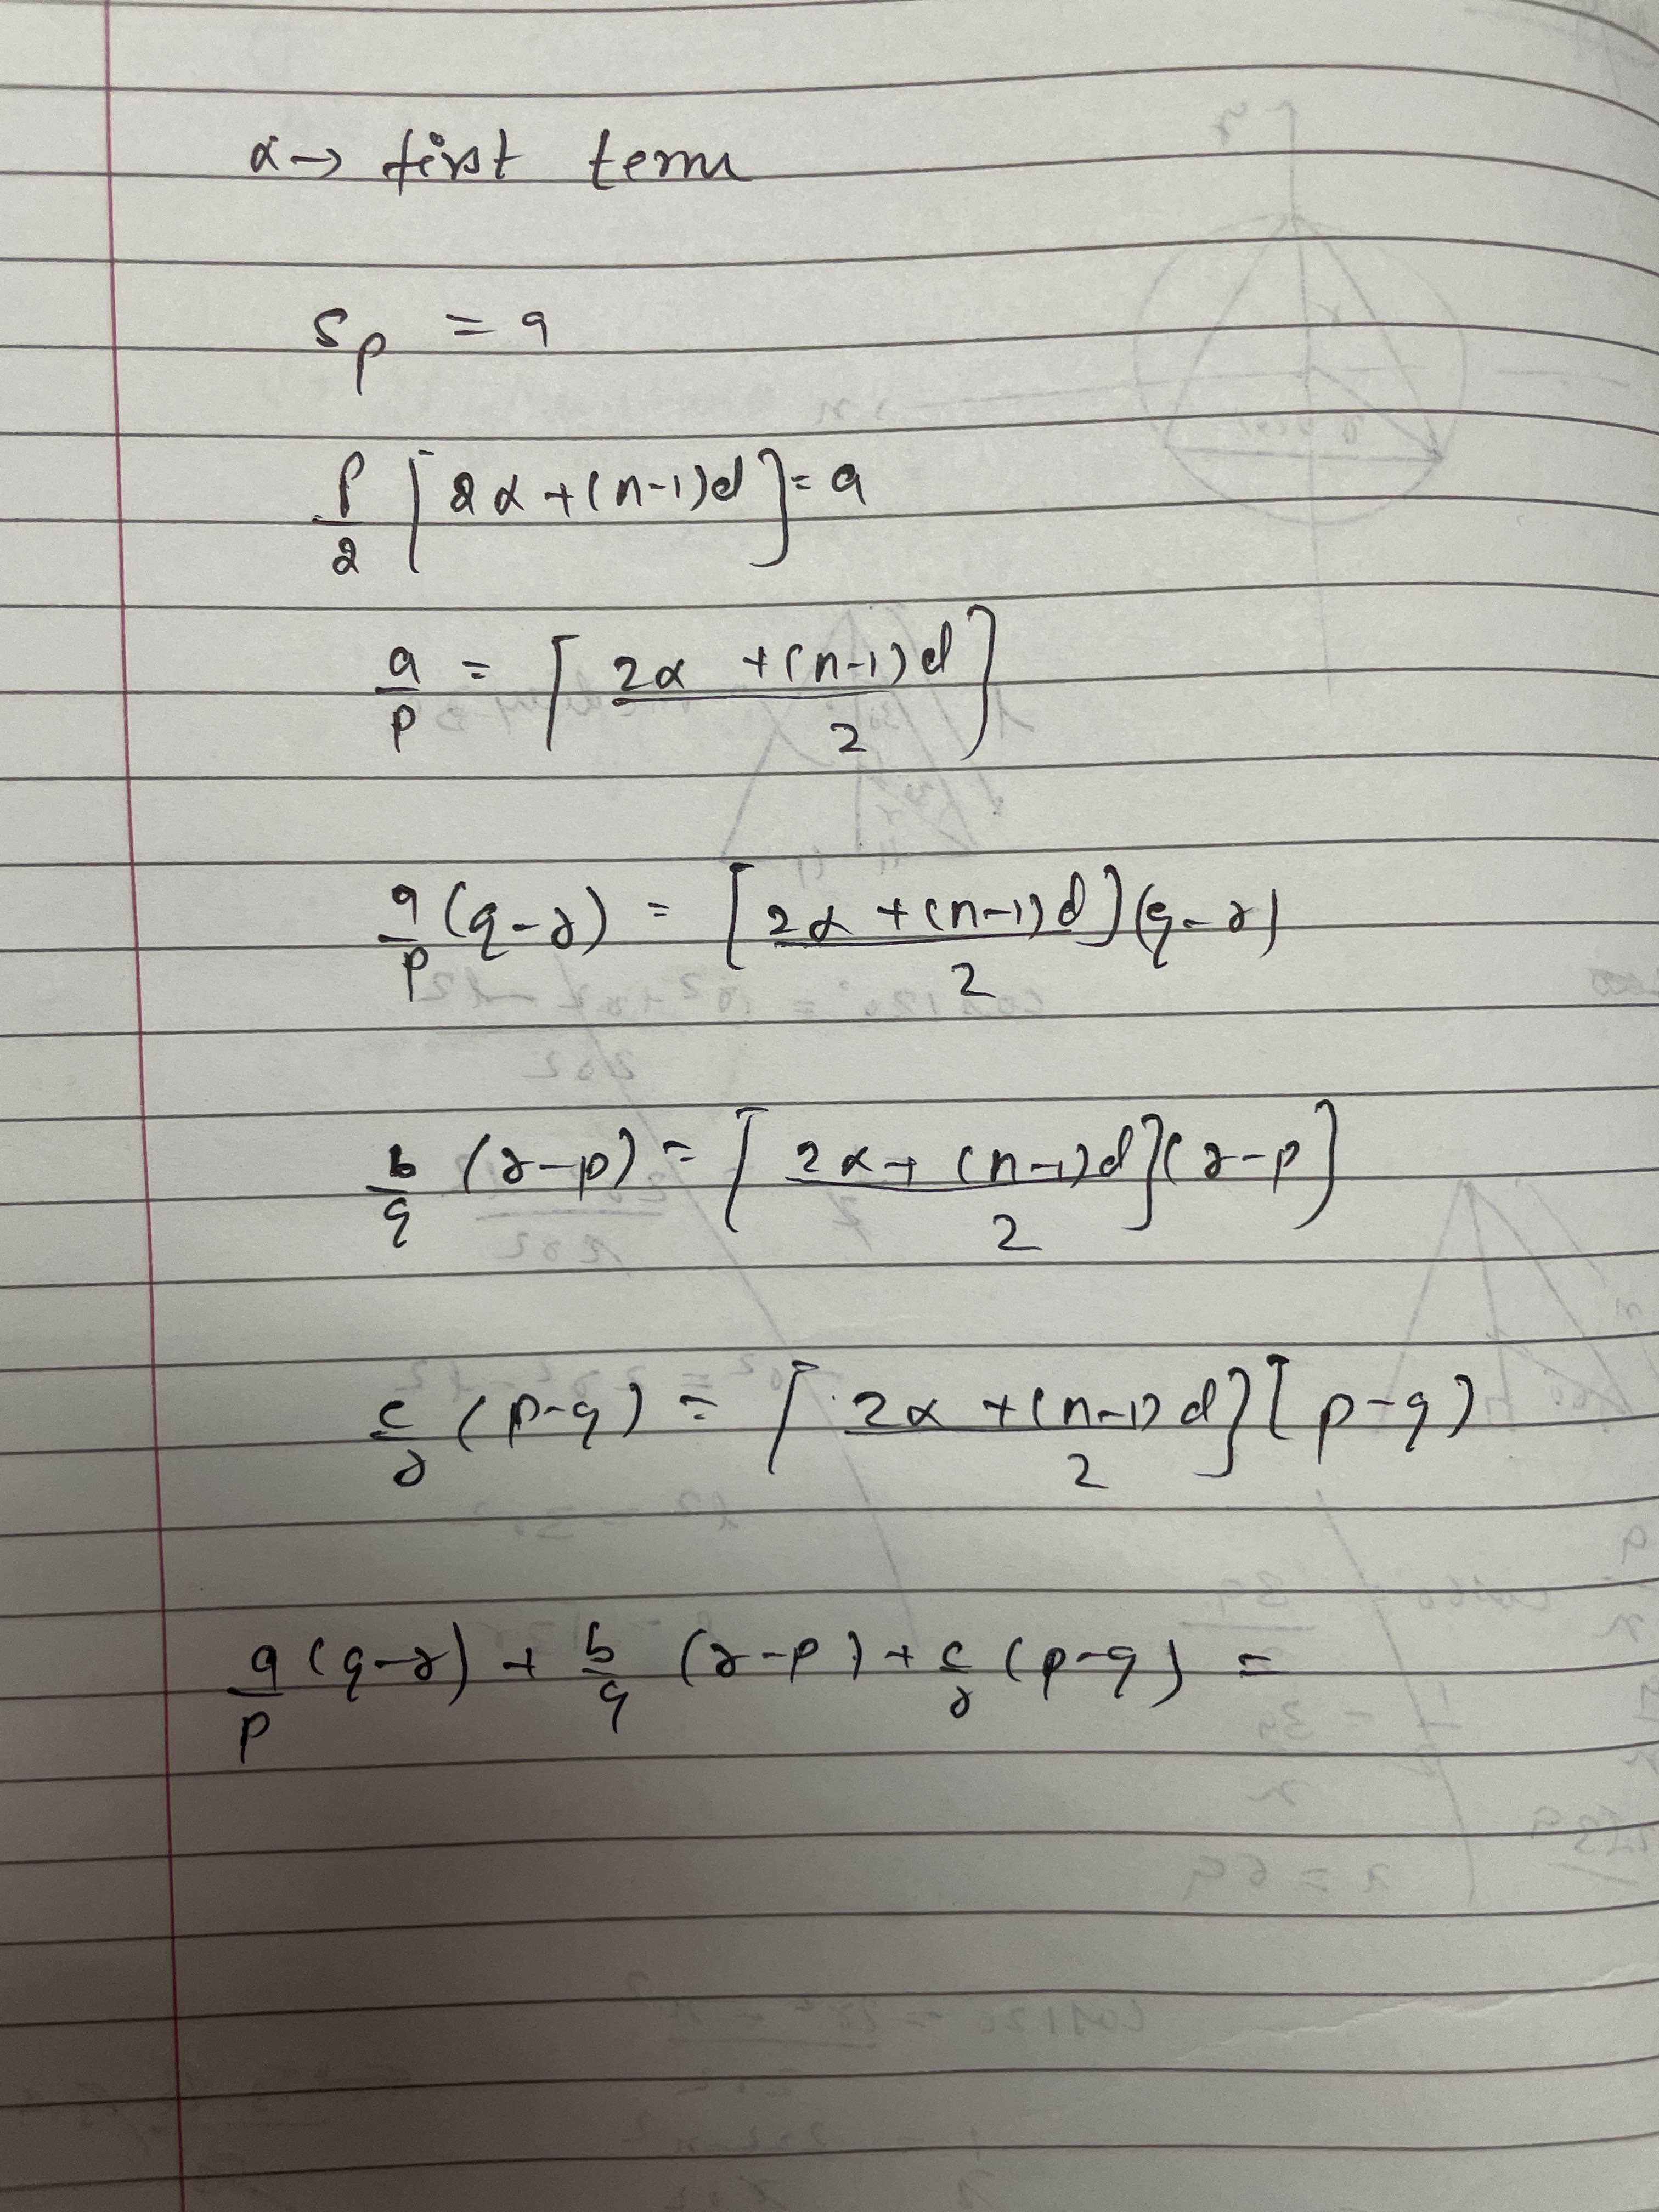 α → first term
S_p = a
p/2 [2α + (n-1)d] = a
a/p = [2α + (n-1)d / 2]
a/p (q-r) = [2α + (n-1)d / 2] (q-r)
b/q (r-p) = [2α + (n-1)d / 2] (r-p]
c/r (p-q) = [2α + (n-1)d / 2] [p-q)
a/p (q-r) + b/q (r-p) + c/r (p-q) =